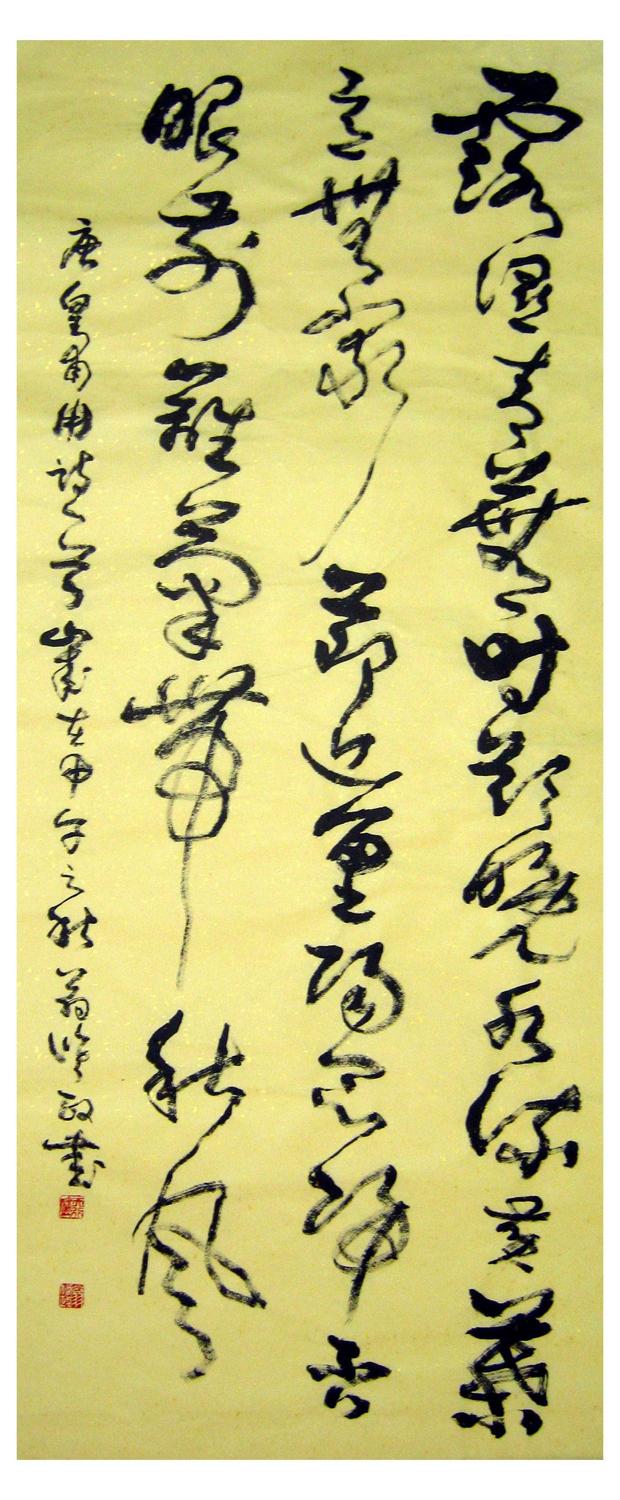 露濕青蕪时欲晚水流黄葉
意無窮節近重陽念歸否
眼前籬菊帶秋風
唐皇甫冉詩一首歲在甲午之秋翁政書